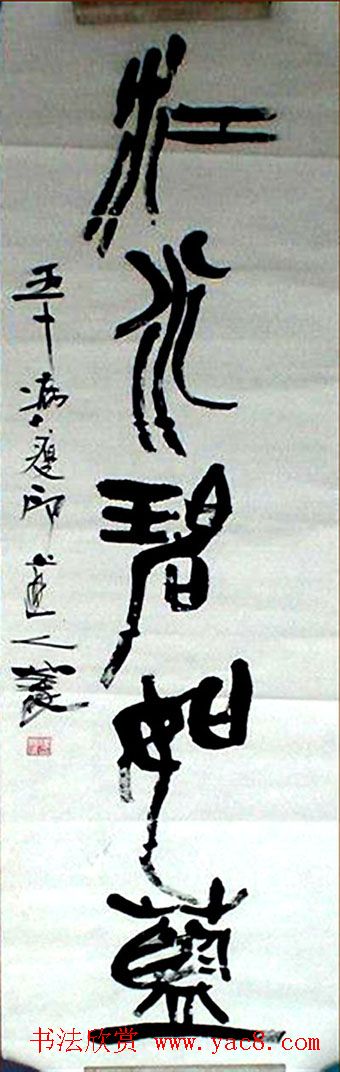 江水碧如藍
五十病
书法欣赏 www.yac8.com